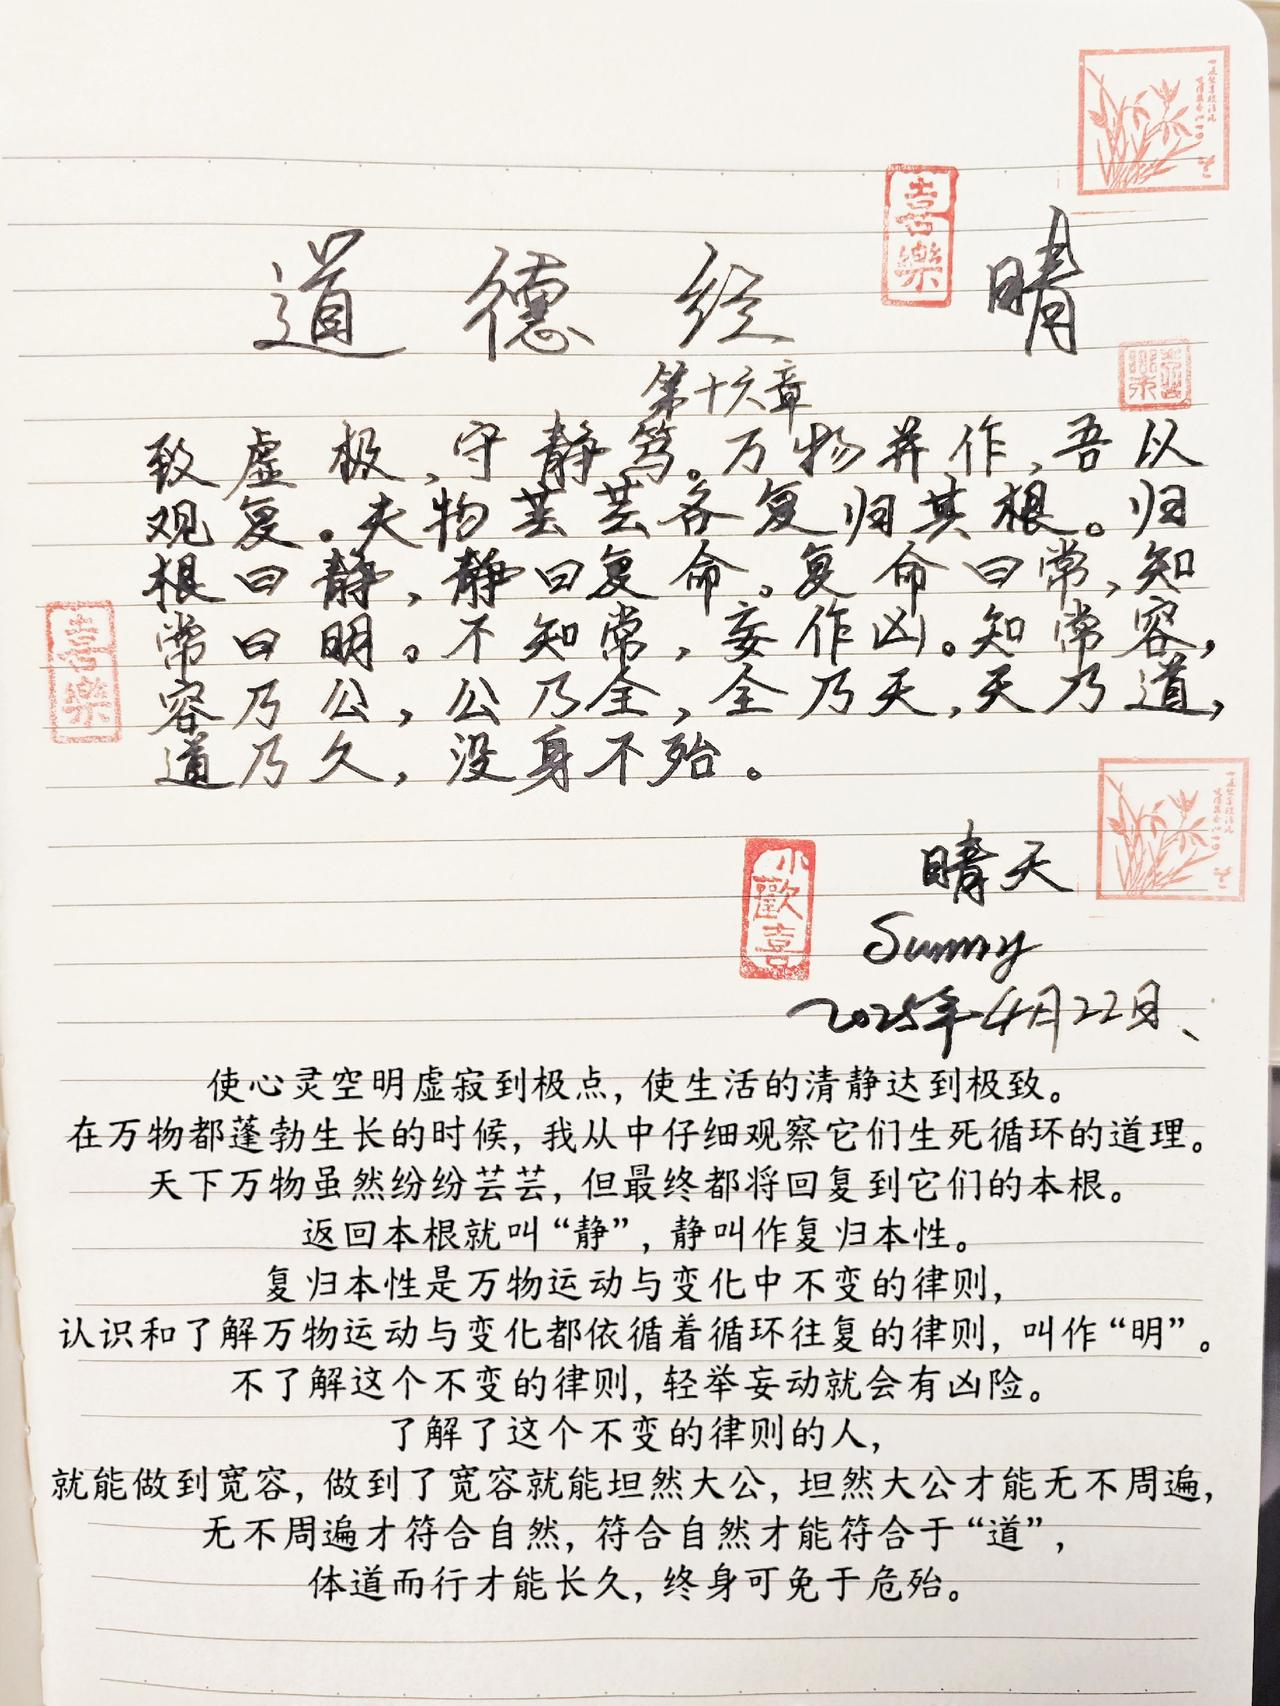 喜樂
道德经 晴
第十六章
喜樂
致虚极,守静笃。万物并作,吾以
观复。夫物芸芸各复归其根。归
根曰静,静曰复命。复命曰常,知
常曰明。不知常,妄作凶。知常容,
喜樂
容乃公,公乃全,全乃天,天乃道,
道乃久,没身不殆。
小歡喜
晴天
Sunny
2025年4月22日、
使心灵空明虚寂到极点,使生活的清静达到极致。
在万物都蓬勃生长的时候,我从中仔细观察它们生死循环的道理。
天下万物虽然纷纷芸芸,但最终都将回复到它们的本根。
返回本根就叫“静”,静叫作复归本性。
复归本性是万物运动与变化中不变的律则,
认识和了解万物运动与变化都依循着循环往复的律则,叫作“明”。
不了解这个不变的律则,轻举妄动就会有凶险。
了解了这个不变的律则的人,
就能做到宽容,做到了宽容就能坦然大公,坦然大公才能无不周遍,
无不周遍才符合自然,符合自然才能符合于“道”,
体道而行才能长久,终身可免于危殆。